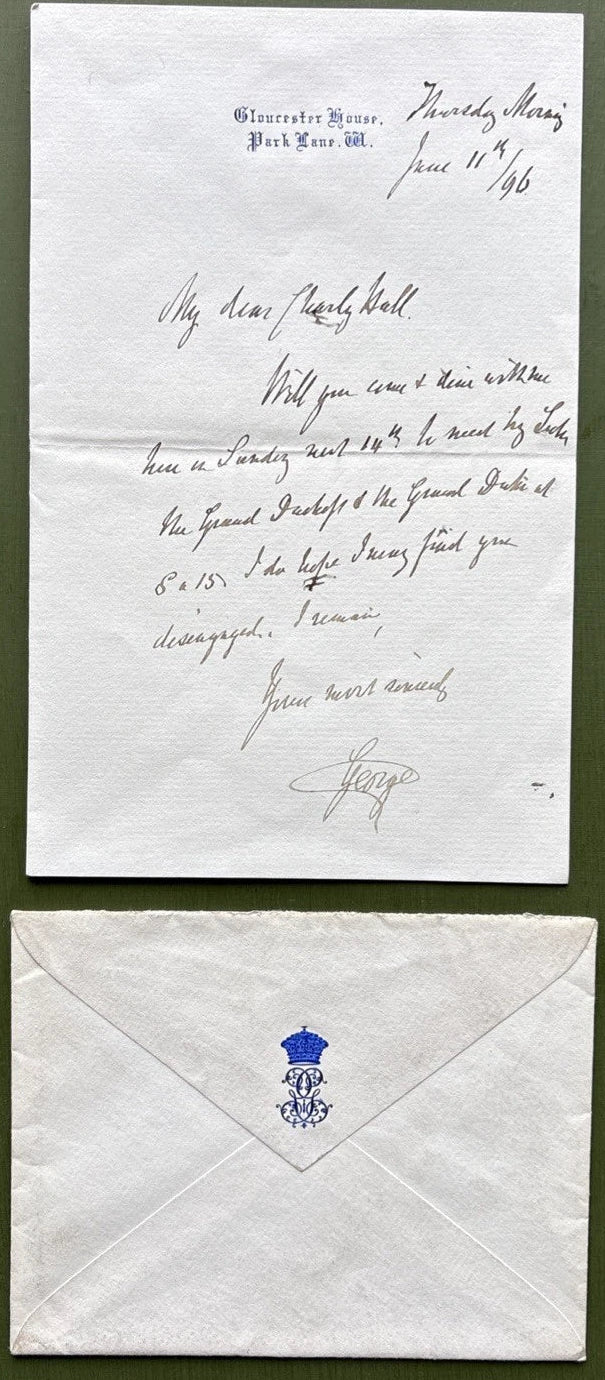 Gloucester House,
Park Lane. W.
Thursday Morning
June 11th/96.
My dear Charly Hall.
Will you come & dine with me
here on Sunday next 14th to meet
the Grand Duchess & the Grand Duke at
8 a 15. I do hope I may find you
disengaged. I remain,
Yours most sincerely
George